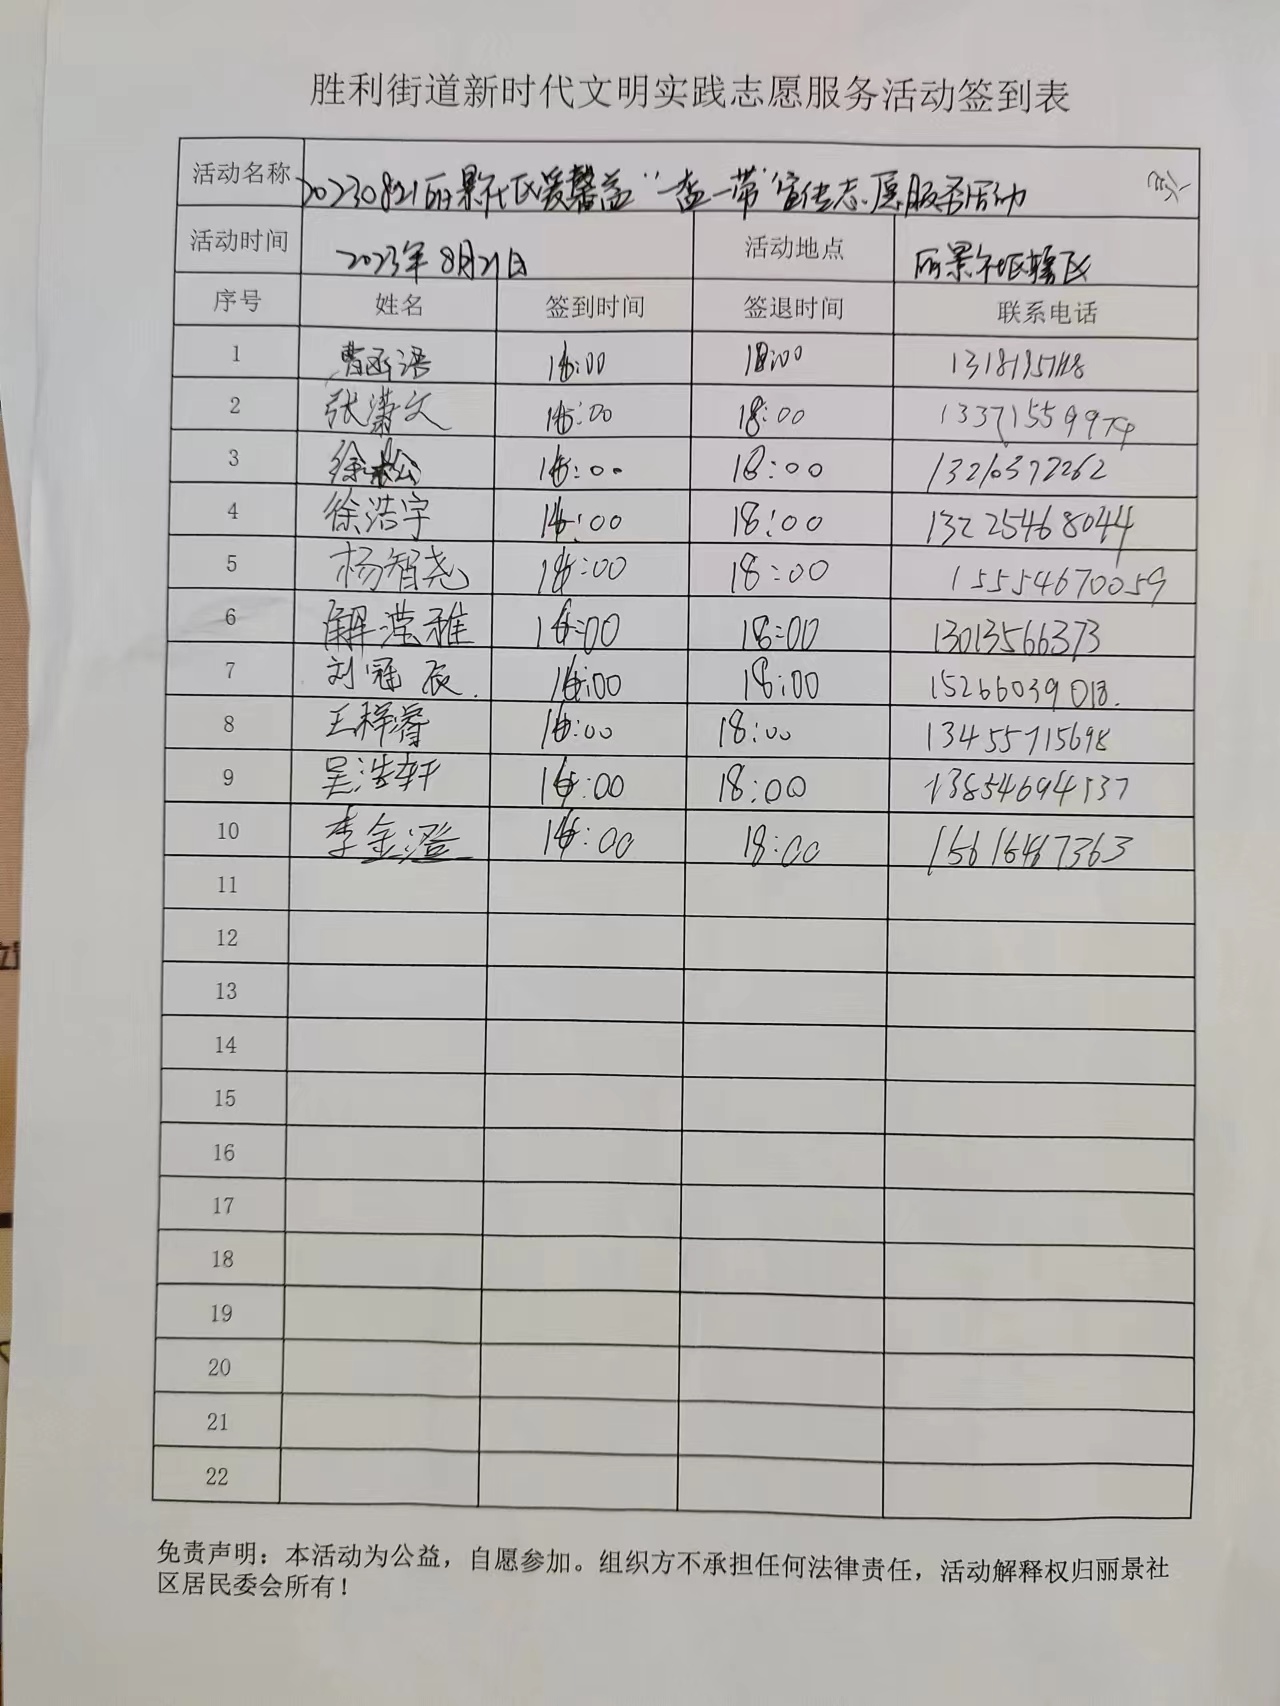 胜利街道新时代文明实践志愿服务活动签到表
活动名称 20230821丽景社区爱馨益“一盔一带”宣传志愿服务活动
活动时间 2023年8月21日 活动地点 丽景社区辖区
序号 姓名 签到时间 签退时间 联系电话
1 曹函语 16:00 18:00
2 张潇文 16:00 18:00 13371559974
3 徐松 16:00 18:00 13210372262
4 徐浩宇 16:00 18:00 13225468044
5 杨智尧 16:00 18:00 15554670059
6 解滢雅 16:00 18:00 13013566373
7 刘冠辰. 16:00 18:00 15266039018.
8 王梓睿 16:00 18:00 13455715698
9 吴浩轩 16:00 18:00 13854694537
10 李金澄 16:00 18:00 15615467363
11
12
13
14
15
16
17
18
19
20
21
22
免责声明：本活动为公益，自愿参加。组织方不承担任何法律责任，活动解释权归丽景社
区居民委会所有！